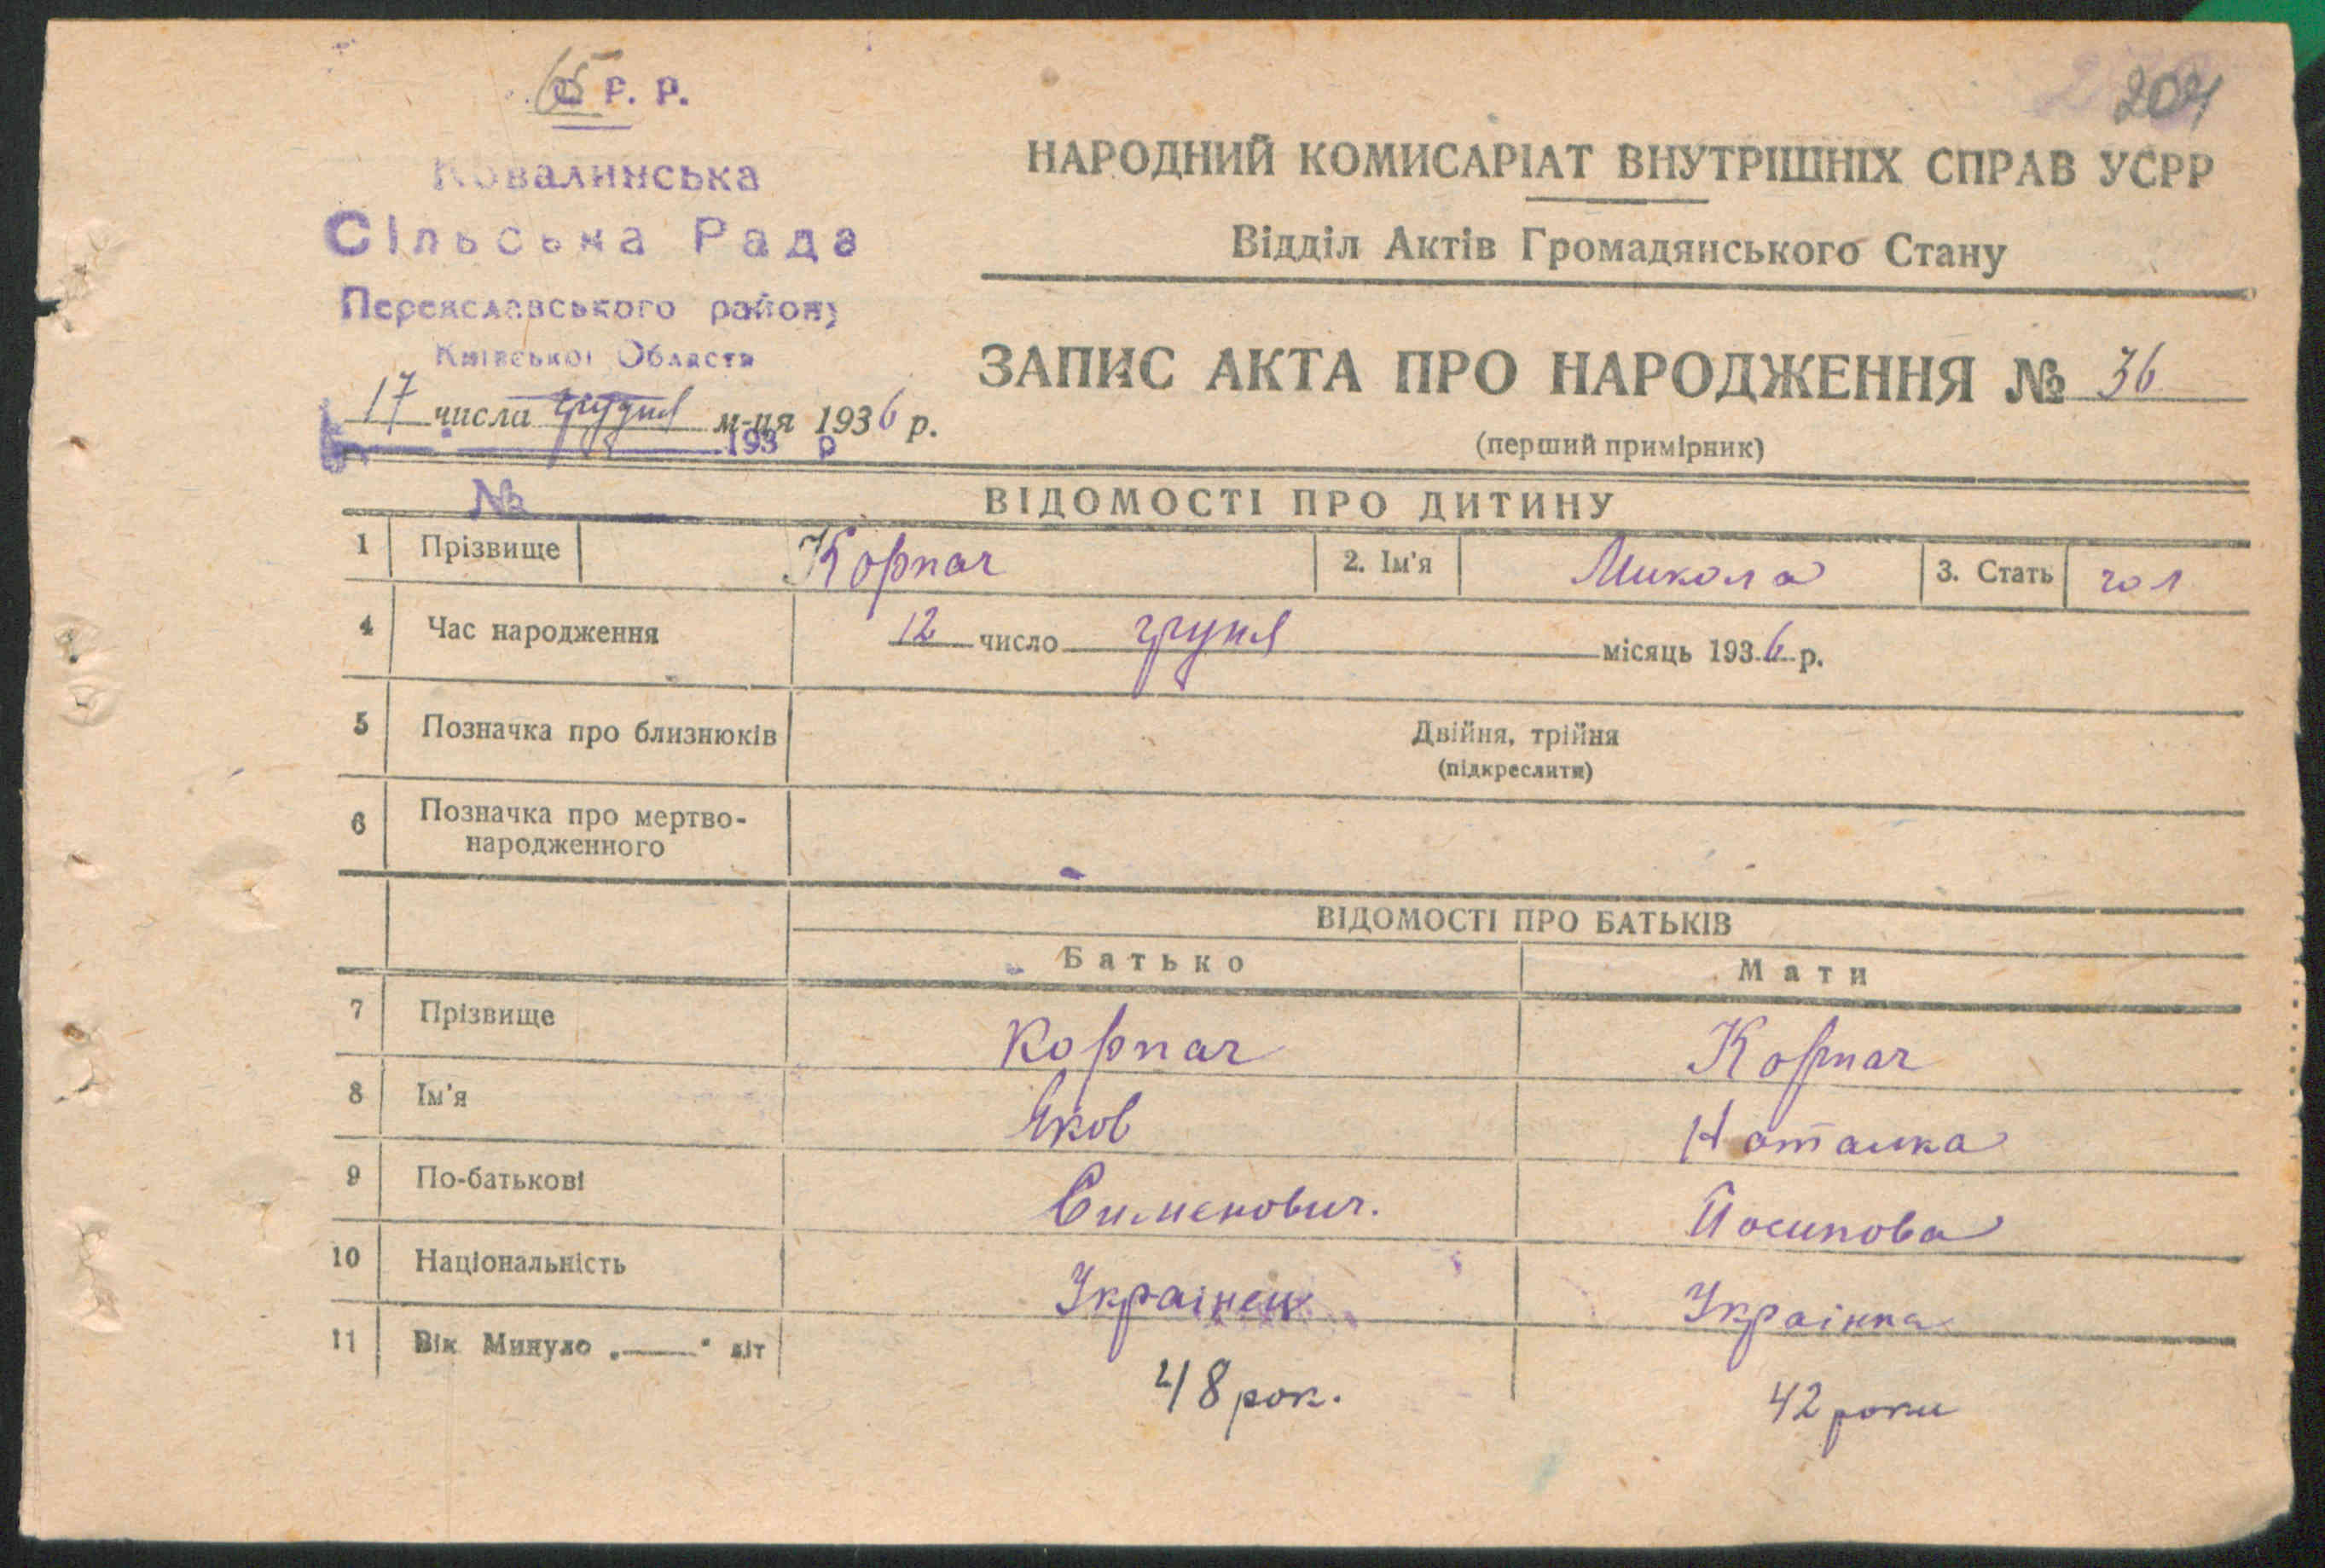 65 Р. Р.
204
Ковалинська
Сільська Рада
Переяславського району
Київської Области
17 числа грудня м-ця 1936 р.
193 р
№
НАРОДНИЙ КОМИСАРІАТ ВНУТРІШНІХ СПРАВ УСРР
Відділ Актів Громадянського Стану
ЗАПИС АКТА ПРО НАРОДЖЕННЯ № 36
(перший примірник)
ВІДОМОСТІ ПРО ДИТИНУ
1 Прізвище Корпач 2. Ім'я Микола 3. Стать чол
4 Час народження 12 число групня місяць 1936 р.
5 Позначка про близнюків Двійня, трійня
(підкреслити)
6 Позначка про мертво-
народженного
ВІДОМОСТІ ПРО БАТЬКІВ
Батько Мати
7 Прізвище Корпач Корпач
8 Ім'я Яков Наталка
9 По-батькові Сименович. Йосипова
10 Національність Украінец Украінка
11 Вік Минуло „ — " літ 48 рок. 42 роки